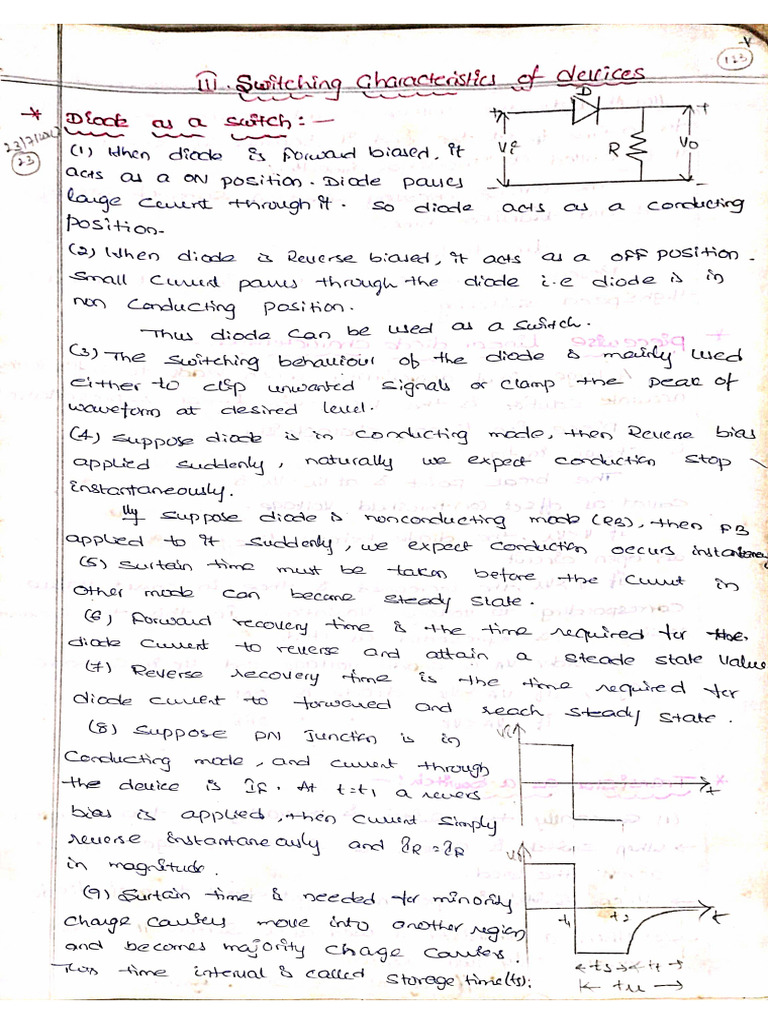 123
III. Switching Characteristics of devices
* Diode as a switch :-
23
(1) When diode is forward biased, it
acts as a ON position. Diode passes
large current through it. so diode acts as a conducting
position.
(2) When diode is Reverse biased, it acts as a OFF position.
Small Current passes through the diode i.e diode is in
non Conducting position.
Thus diode can be used as a switch.
(3) The switching behaviour of the diode is mainly used
either to clip unwanted signals or clamp the peak of
waveform at desired level.
(4) Suppose diode is in conducting mode, then Reverse bias
applied suddenly, naturally we expect conduction stop
instantaneously.
lly suppose diode is nonconducting mode (RB), then FB
applied to it suddenly, we expect conduction occurs
(5) Surtain time must be taken before the current in
other mode can become steady state.
(6) Forward recovery time is the time required for the
diode current to reverse and attain a steade state value
(7) Reverse recovery time is the time required for
diode current to forwared and reach steady state.
(8) Suppose PN Junction is in
Conducting mode, and current through
the device is IF. At t=t1 a revers
bias is applied, then current simply
reverse instantaneously and
in magnitude.
(9) Surtain time is needed for minority
charge carriers move into another region
and becomes majority charge carriers.
This time interval is called storage time(ts).
D
+ +
Vi R Vo
- -
t
t1 t2 t
ts tt